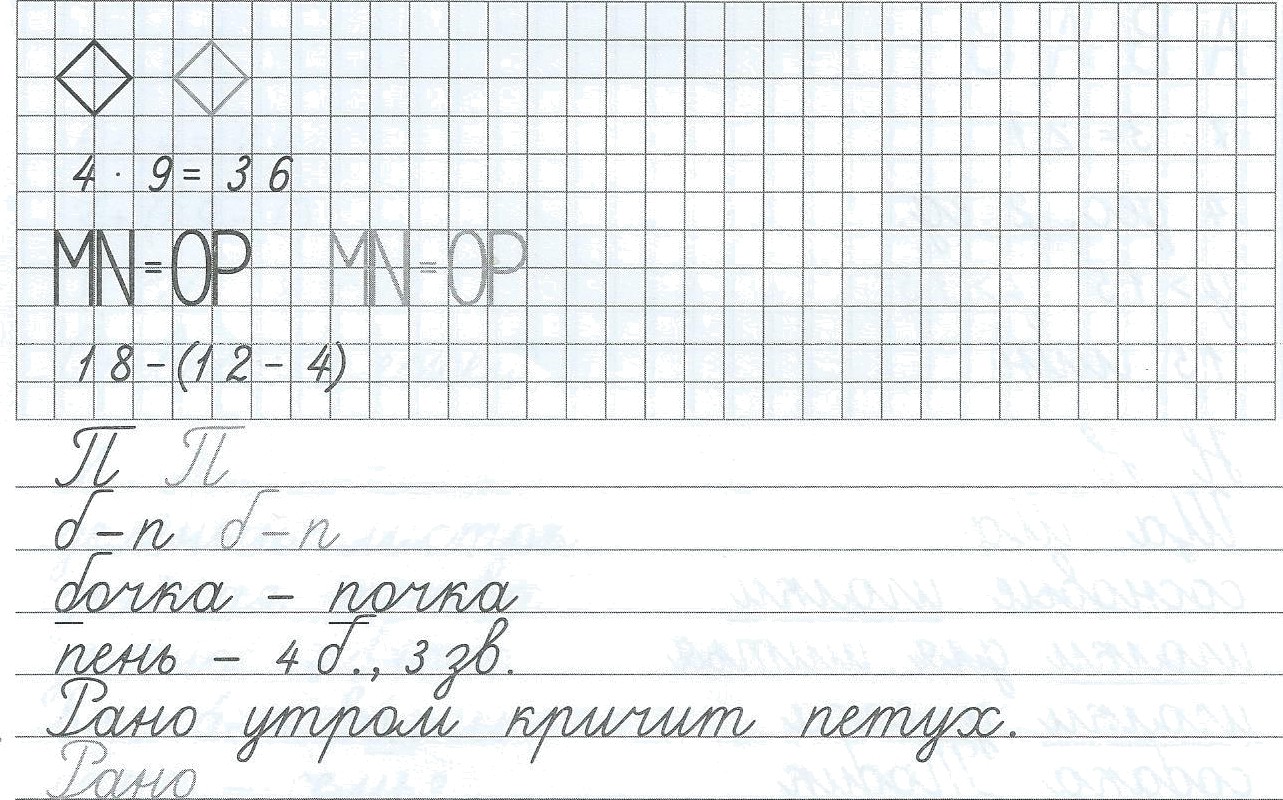 4 · 9 = 36
MN = OP MN = OP
18 - (12 - 4)
П П
б - п б - п
бочка - почка
пень - 4 б., 3 зв.
Рано утром кричит петух.
Рано